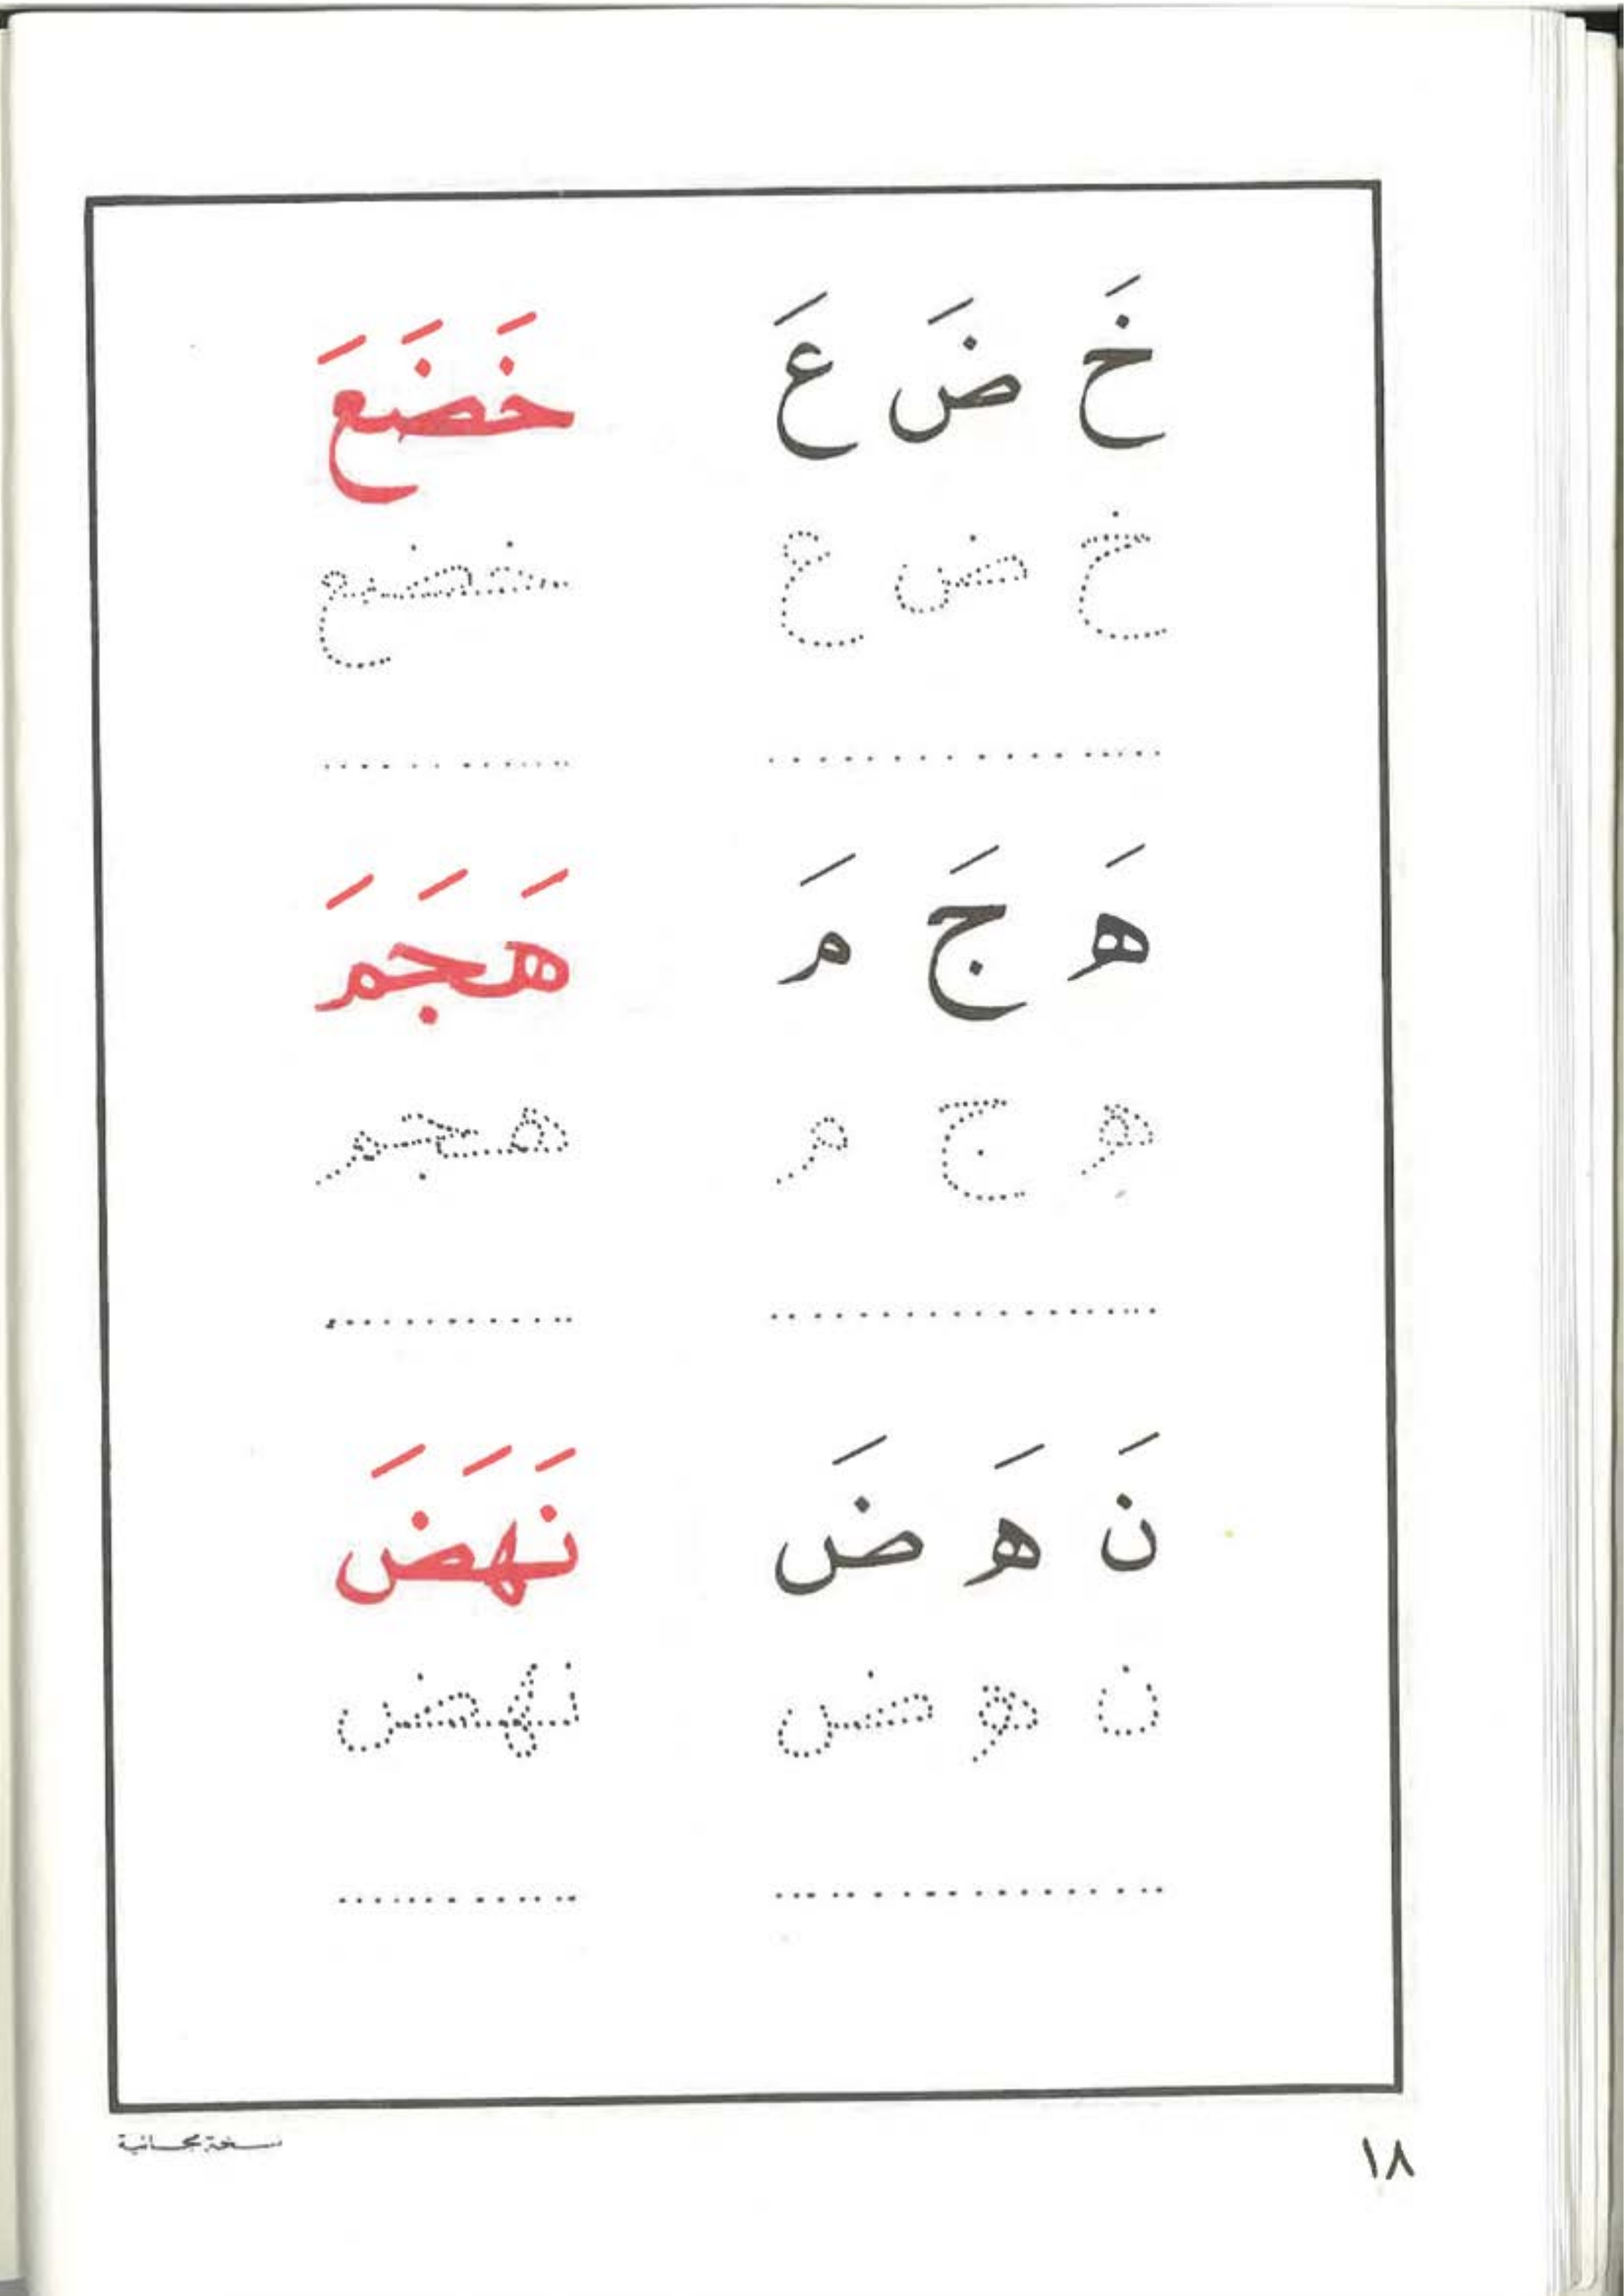 خَ ضَ عَ خَضَعَ
خ ض ع خضع
هَ جَ مَ هَجَمَ
ه ج م هجم
نَ هَ ضَ نَهَضَ
ن ه ض نهض
١٨ نسخة مجانية